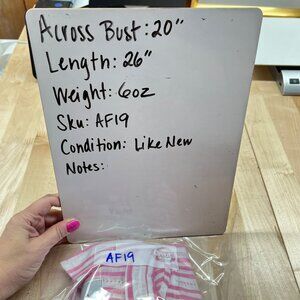 Across Bust: 20"
Length: 26"
Weight: 6oz
Sku: AF19
Condition: Like New
Notes:
AF19